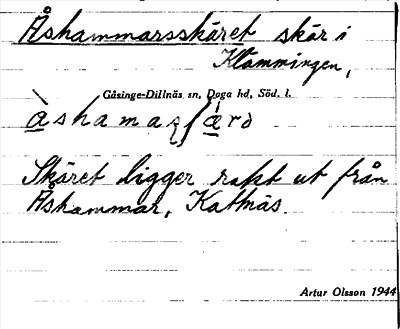 Åshammarsskäret skär i
Klämmingen,
Gåsinge-Dillnäs sn, Daga hd, Söd. l.
Skäret ligger rakt ut från
Åshammar, Kattnäs.
Artur Olsson 1944